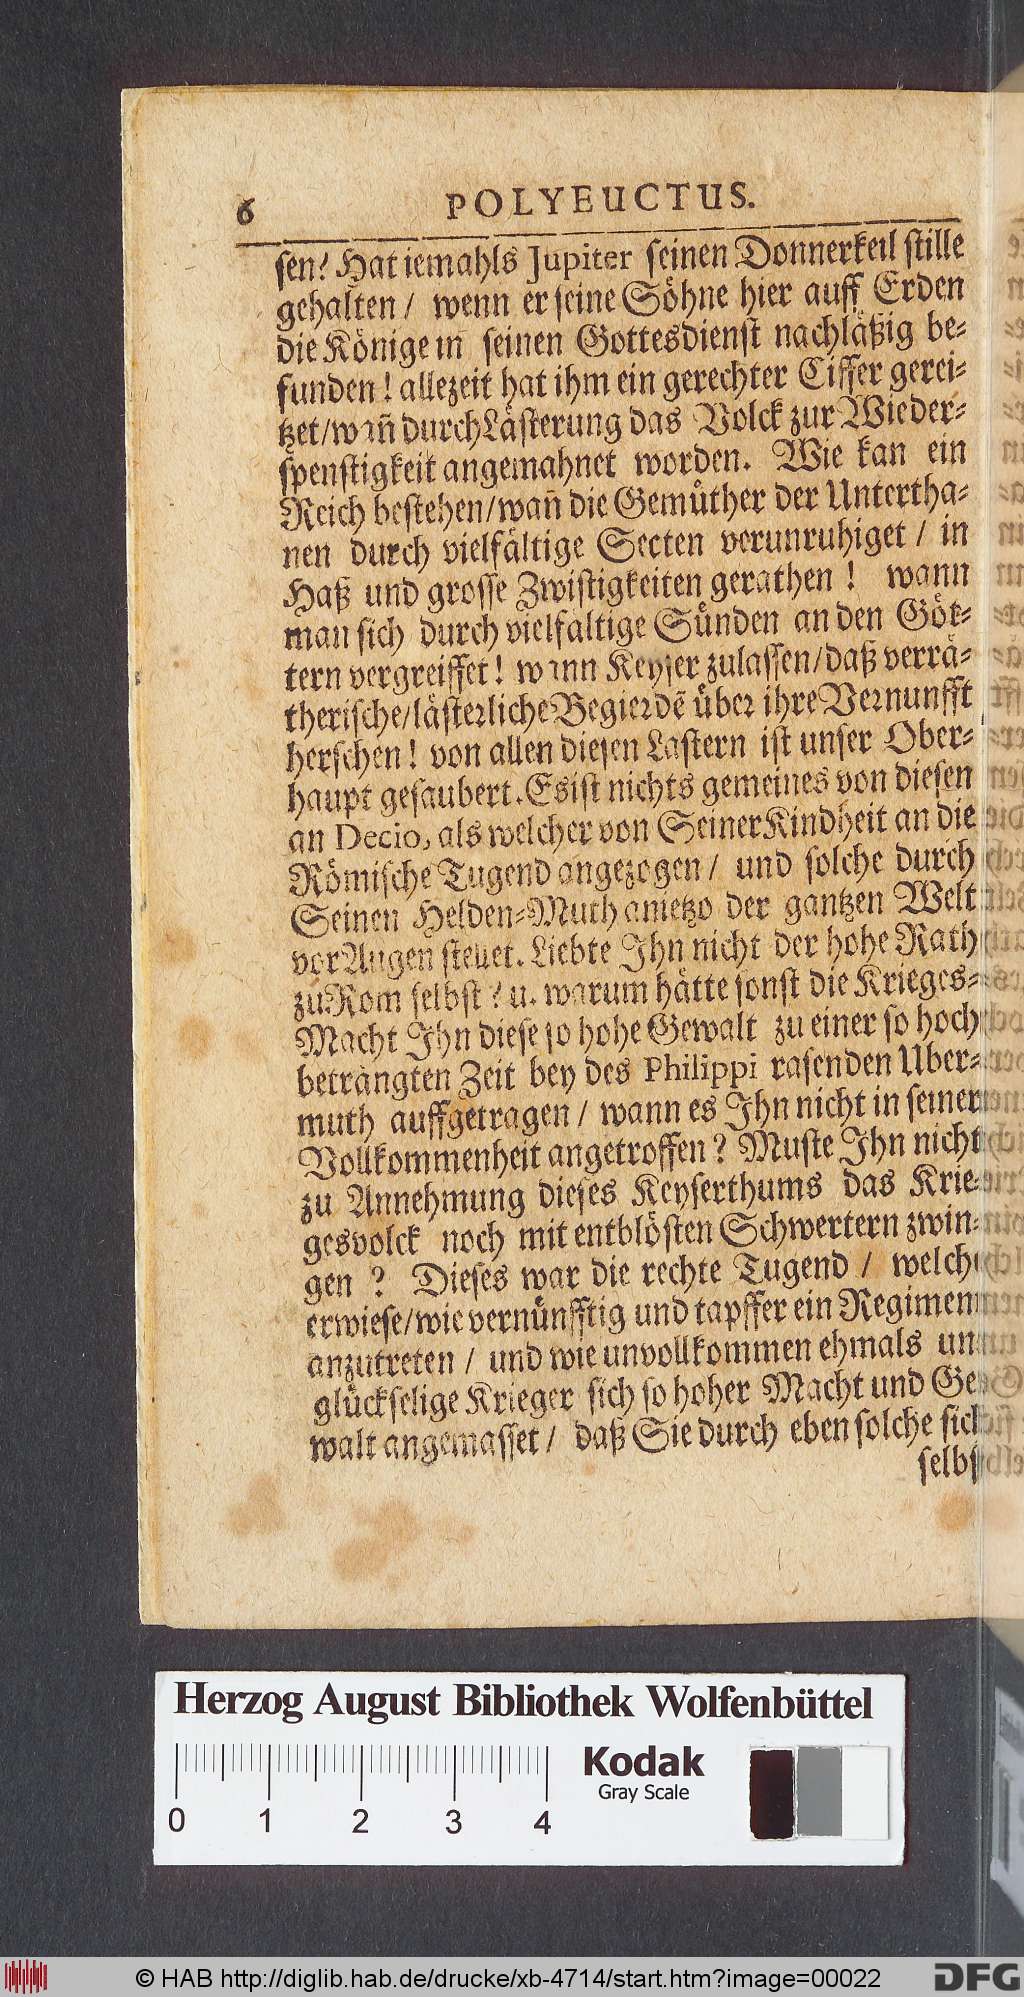 6 POLYEUCTUS.
sen? Hat iemahls Jupiter seinen Donnerkeil stille
gehalten / wenn er seine Söhne hier auff Erden
die Könige in seinen Gottesdienst nachläßig be-
funden! allezeit hat ihm ein gerechter Eiffer gerei-
tzet/wañ durch Lästerung das Volck zur Wieder-
spenstigkeit angemahnet worden. Wie kan ein
Reich bestehen/wañ die Gemüther der Untertha-
nen durch vielfältige Secten verunruhiget / in
Haß und grosse Zwistigkeiten gerathen! wann
man sich durch vielfaltige Sünden an den Göt-
tern vergreiffet! wann Keyser zulassen/daß verrä-
therische/lästerliche Begierdē über ihre Vernunfft
herschen! von allen diesen Lastern ist unser Ober-
haupt gesaubert. Es ist nichts gemeines von diesen
an Decio, als welcher von Seiner Kindheit an die
Römische Tugend angezogen / und solche durch
Seinen Helden-Muth anietzo der gantzen Welt
vor Augen stellet. Liebte Ihn nicht der hohe Rath
zu Rom selbst? u. warum hätte sonst die Krieges-
Macht Ihn diese so hohe Gewalt zu einer so hoch
beträngten Zeit bey des Philippi rasenden Uber-
muth auffgetragen / wann es Ihn nicht in seiner
Vollkommenheit angetroffen? Muste Ihn nicht
zu Annehmung dieses Keyserthums das Krie-
gesvolck noch mit entblösten Schwertern zwin-
gen? Dieses war die rechte Tugend / welch
erwiese/wie vernünfftig und tapffer ein Regimen
anzutreten / und wie unvollkommen ehmals un
glückselige Krieger sich so hoher Macht und Ge
walt angemasset / daß Sie durch eben solche sich
selbs
Herzog August Bibliothek Wolfenbüttel
0 1 2 3 4
Kodak
Gray Scale
© HAB http://diglib.hab.de/drucke/xb-4714/start.htm?image=00022
DFG